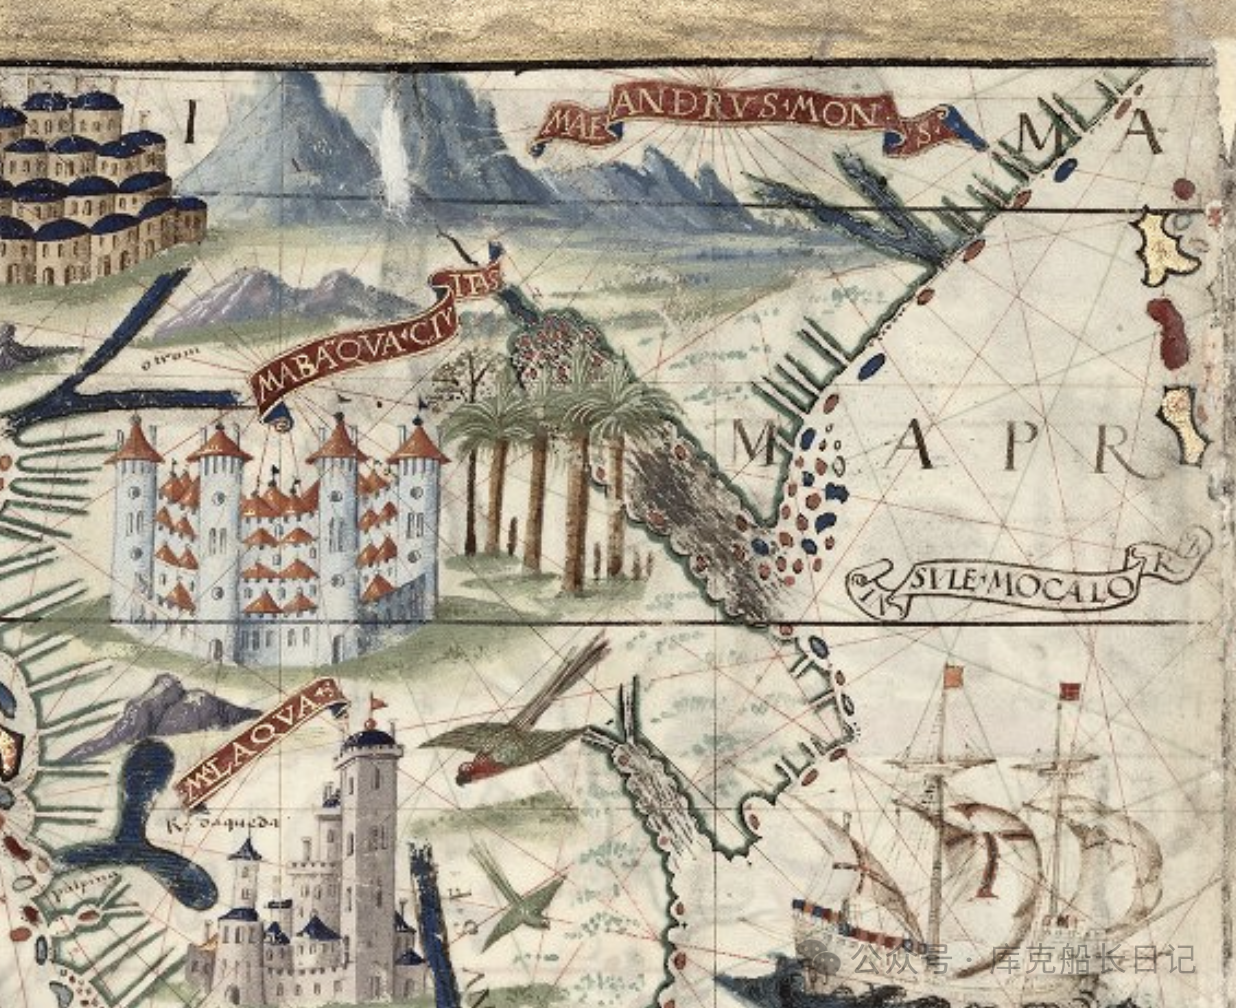 I
MAEANDRVS·MONS.
M A
MABAQVA·CIVITAS
otrom
M A P R
INSVLE·MOCALOR
MALAQVA
R. daqueda
palpina
公众号 · 库克船长日记